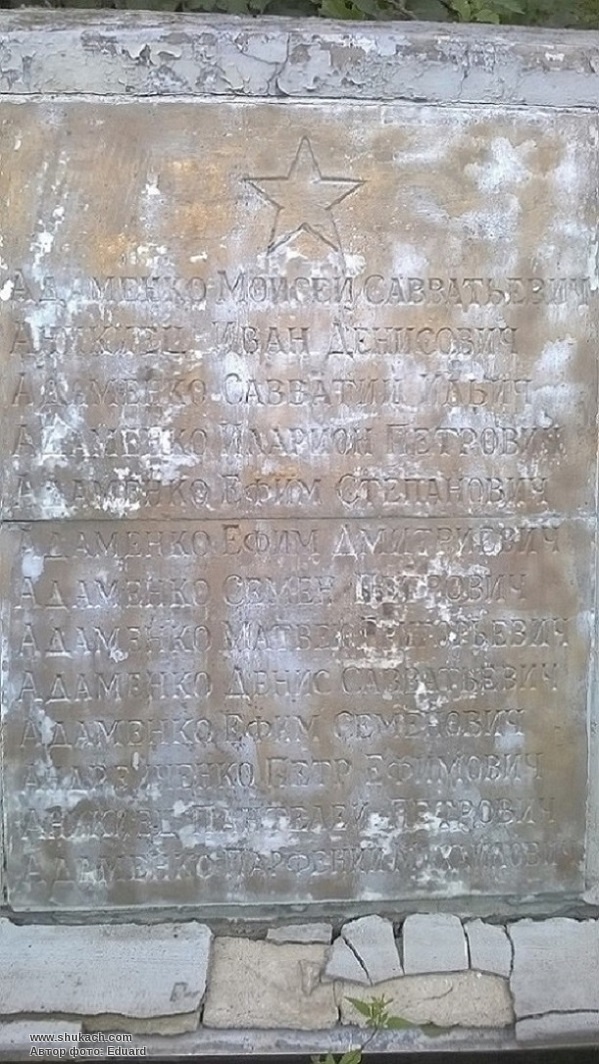 Адаменко Моисей Савватьевич
Аникиец Иван Денисович
Адаменко Савватий Ильич
Адаменко Иларион Петрович
Адаменко Ефим Степанович
Адаменко Ефим Дмитриевич
Адаменко Семен Петрович
Адаменко Матвей Григорьевич
Адаменко Денис Савватьевич
Адаменко Ефим Семенович
Андрейченко Петр Ефимович
Аникиец Пантелей Петрович
Адаменко Парфений Михайлович
www.shukach.com
Автор фото: Eduard